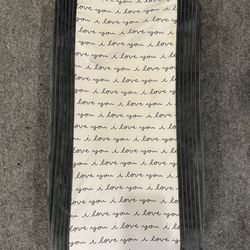 i love you i love
you i love you i
love you i love you
i love you i love
you i love you i
love you i love you
i love you i love
you i love you i
love you i love you
i love you i love
you i love you i
love you i love you
i love you i love
you i love you i
love you i love you
i love you i love
you i love you i
love you i love you
i love you i love
you i love you i